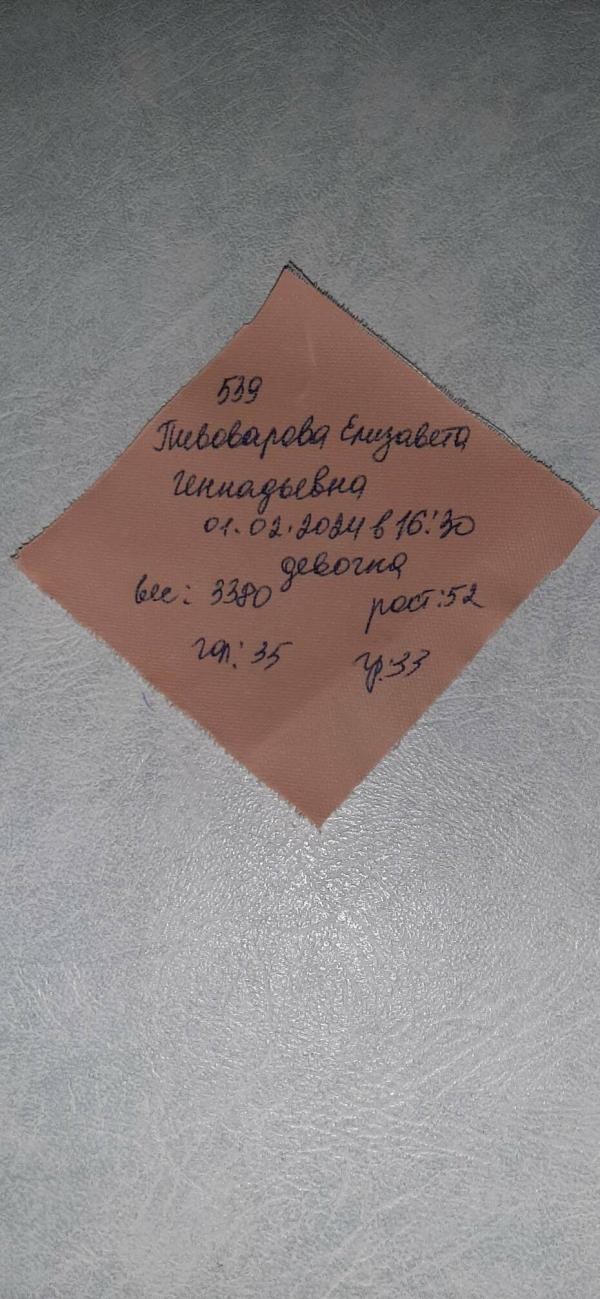 539
Пивоварова Елизавета
Геннадьевна
01.02.2024 в 16:30
девочка
вес: 3380 рост: 52
гол: 35 гр: 33